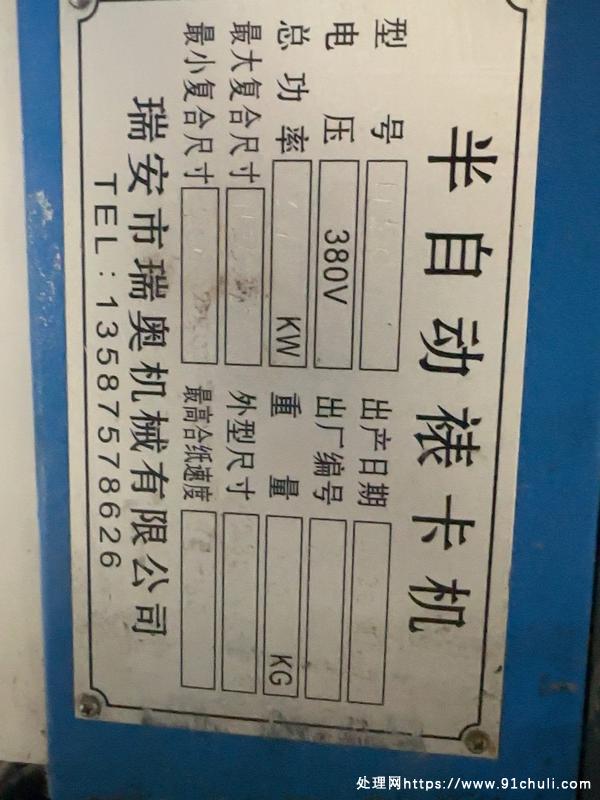 半自动裱卡机
型号 出产日期
电压 380V 出厂编号
总功率 KW 重量 KG
最大复合尺寸 外型尺寸
最小复合尺寸 最高合纸速度
瑞安市瑞奥机械有限公司
TEL:13587578626
处理网https://www.91chuli.com